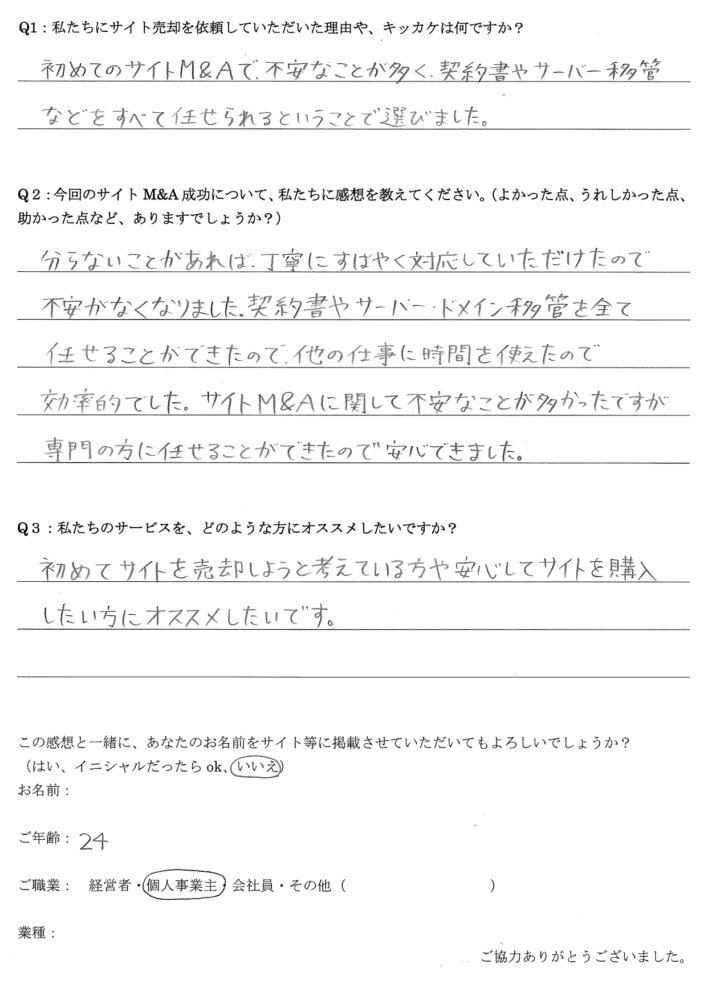 Q1：私たちにサイト売却を依頼していただいた理由や、キッカケは何ですか？
初めてのサイトM&Aで、不安なことが多く、契約書やサーバー移管
などをすべて任せられるということで選びました。
Q２：今回のサイト M&A 成功について、私たちに感想を教えてください。（よかった点、うれしかった点、
助かった点など、ありますでしょうか？）
分らないことがあれば、丁寧にすばやく対応していただけたので
不安がなくなりました。契約書やサーバー・ドメイン移管を全て
任せることができたので、他の仕事に時間を使えたので
効率的でした。サイトM&Aに関して不安なことが多かったですが
専門の方に任せることができたので安心できました。
Q３：私たちのサービスを、どのような方にオススメしたいですか？
初めてサイトを売却しようと考えている方や安心してサイトを購入
したい方にオススメしたいです。
この感想と一緒に、あなたのお名前をサイト等に掲載させていただいてもよろしいでしょうか？
（はい、イニシャルだったら ok、いいえ）
お名前：
ご年齢：24
ご職業：　経営者・個人事業主・会社員・その他（　　　　　　　　　）
業種：
ご協力ありがとうございました。